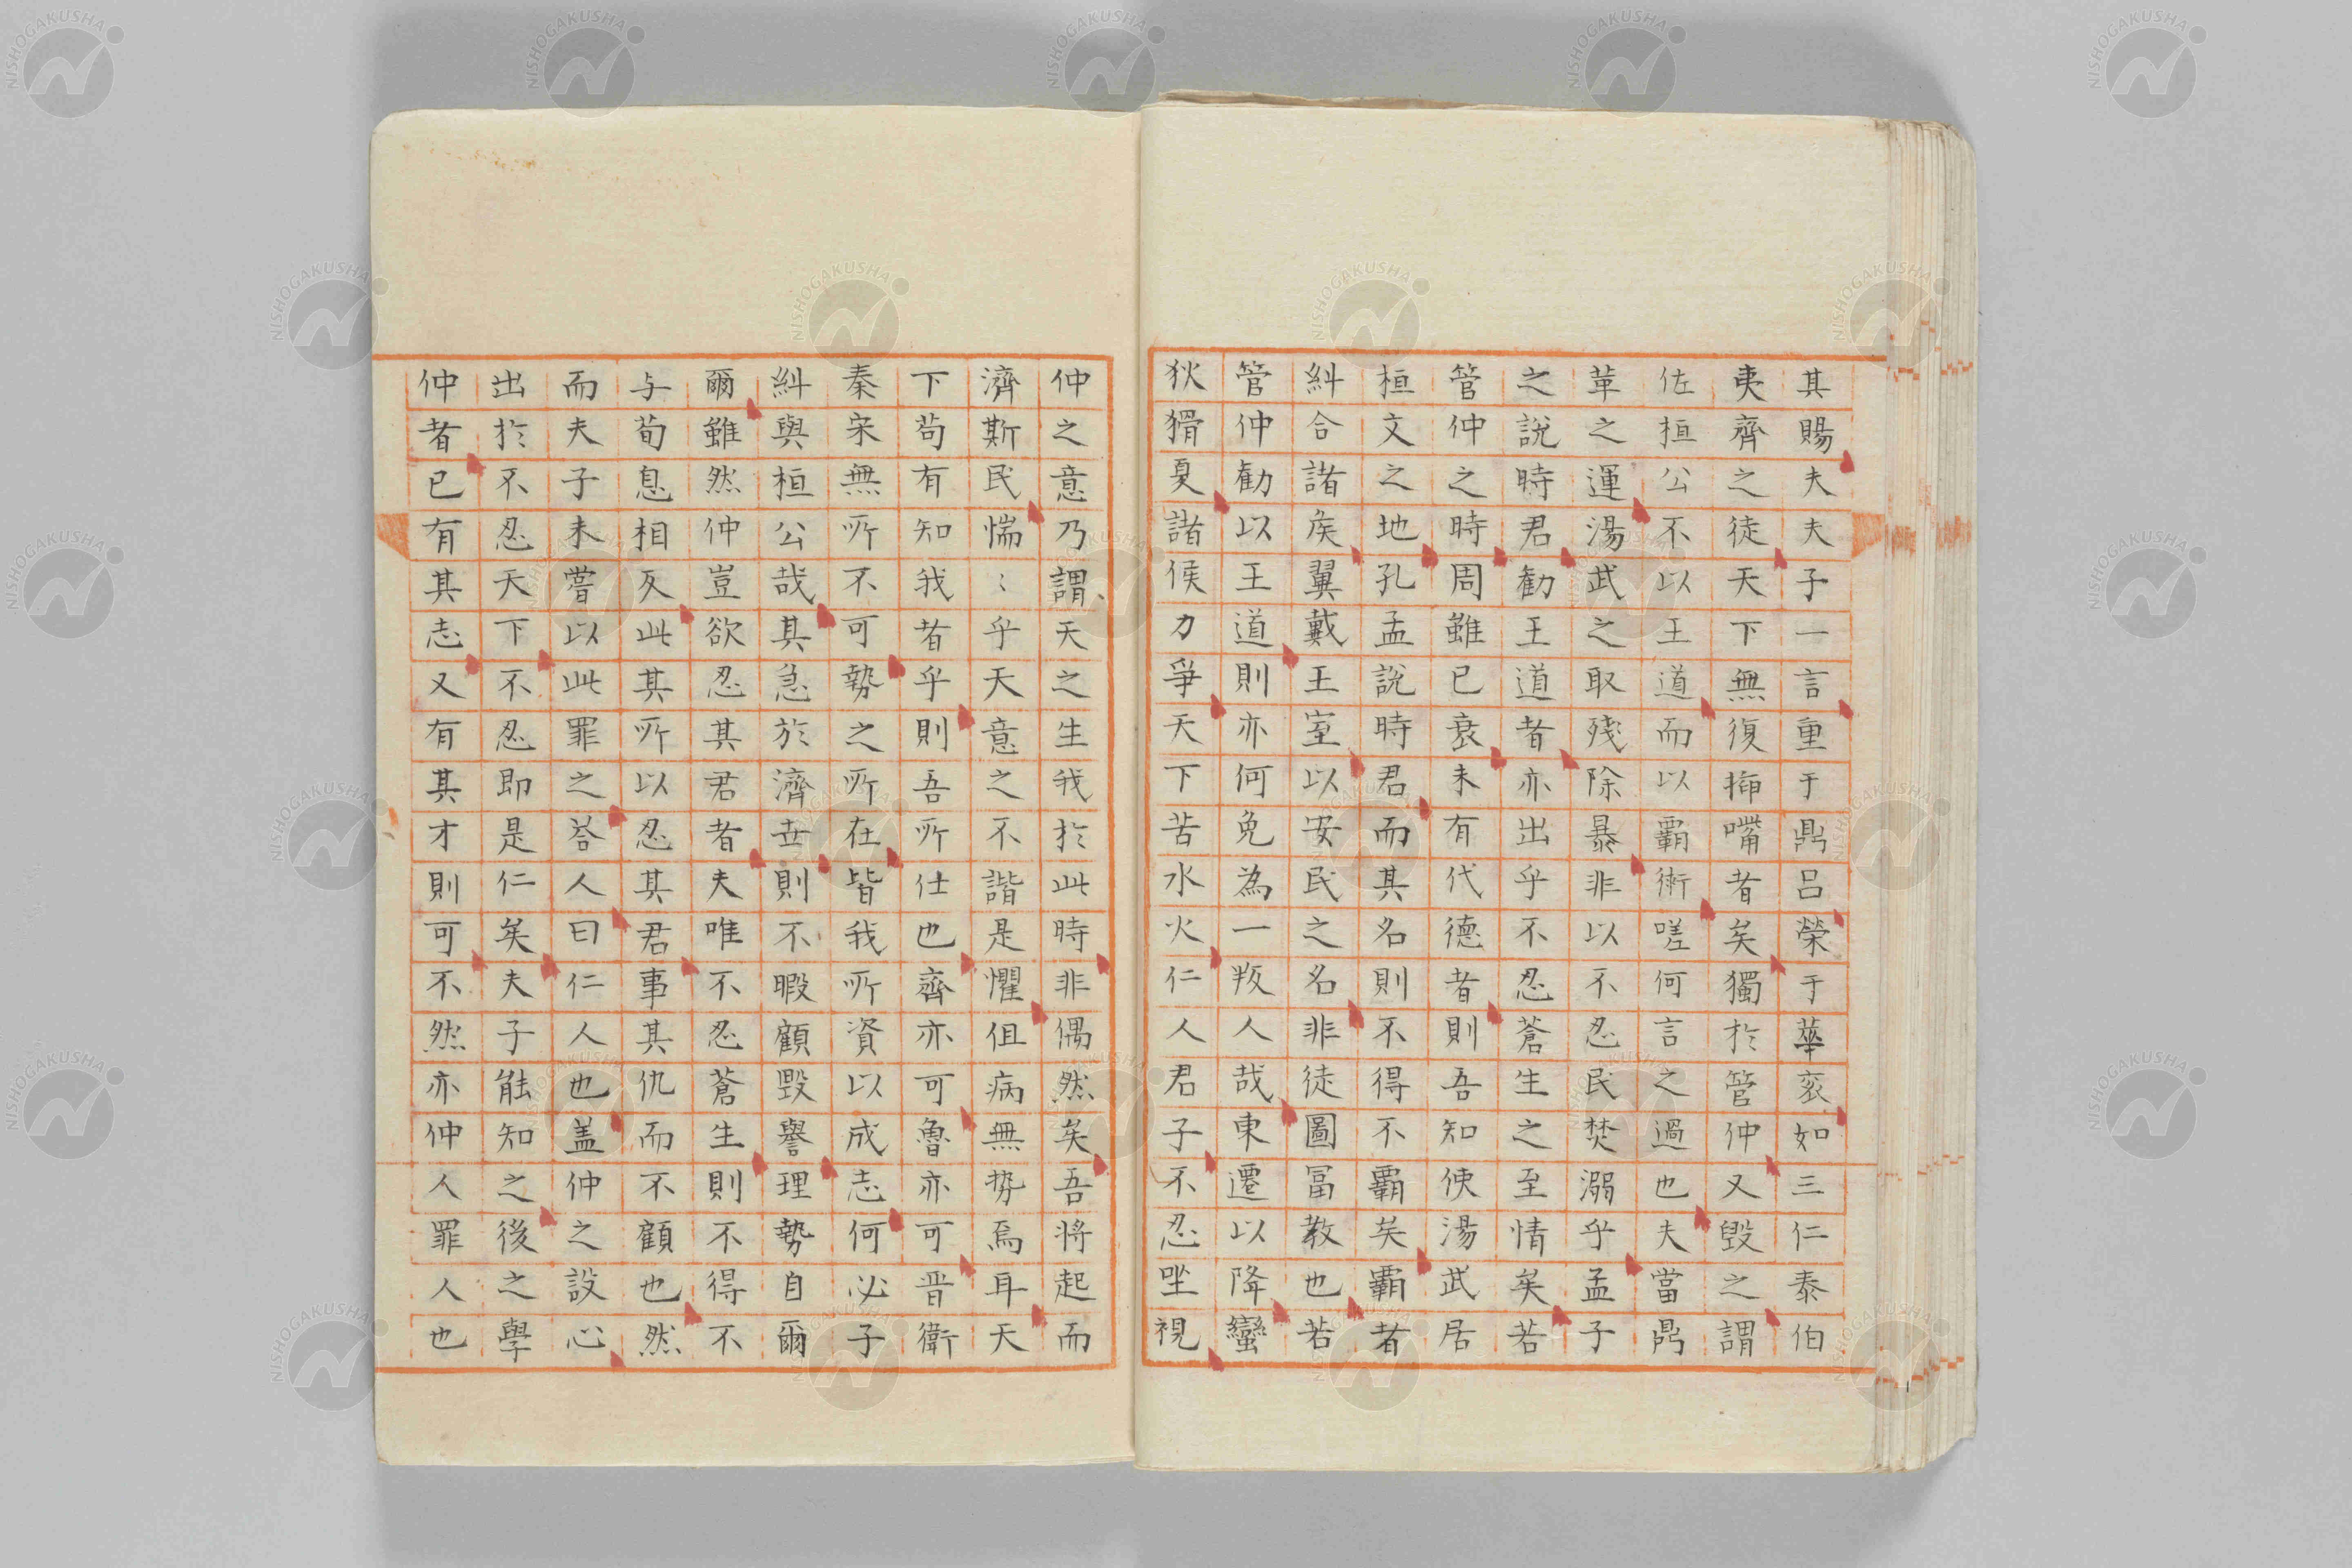 其賜夫夫子一言重于鼎呂榮于華衮如三仁泰伯
夷齊之徒天下無復揷嘴者矣獨於管仲又毀之謂
佐桓公不以王道而以覇術嗟何言之過也夫當鼎
革之運湯武之取殘除暴非以不忍民焚溺乎孟子
之說時君勧王道者亦出乎不忍蒼生之至情矣若
管仲之時周雖已衰未有代德者則吾知使湯武居
桓文之地孔孟說時君而其名則不得不覇矣覇者
糾合諸矦翼戴王室以安民之名非徒圖冨教也若
管仲勧以王道則亦何免為一叛人哉東遷以降蠻
狄猾夏諸侯力爭天下苦水火仁人君子不忍坐視
仲之意乃謂天之生我於此時非偶然矣吾将起而
濟斯民惴〻乎天意之不諧是懼但病無势焉耳天
下苟有知我者乎則吾所仕也齊亦可魯亦可晋衛
秦宋無所不可勢之所在皆我所資以成志何必子
糾與桓公哉其急於濟世則不暇顧毀譽理勢自爾
爾雖然仲豈欲忍其君者夫唯不忍蒼生則不得不
与荀息相反此其所以忍其君事其仇而不顧也然
而夫子未嘗以此罪之荅人曰仁人也盖仲之設心
出於不忍天下不忍即是仁矣夫子能知之後之學
仲者已有其志又有其才則可不然亦仲人罪人也
NISHOGAKUSHA